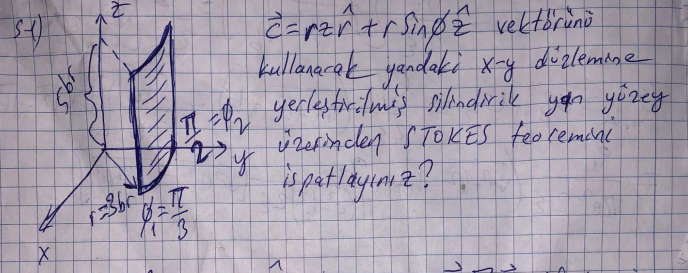 S-1)
z
c⃗ = rzr̂ + rSinϕẑ vektörünü
kullanarak yandaki x-y düzlemine
yerleştirilmiş silindirik yan yüzey
üzerinden STOKES teoremini
ispatlayınız?
5br
π/2 = ϕ₂
y
r=3br
ϕ₁ = π/3
x